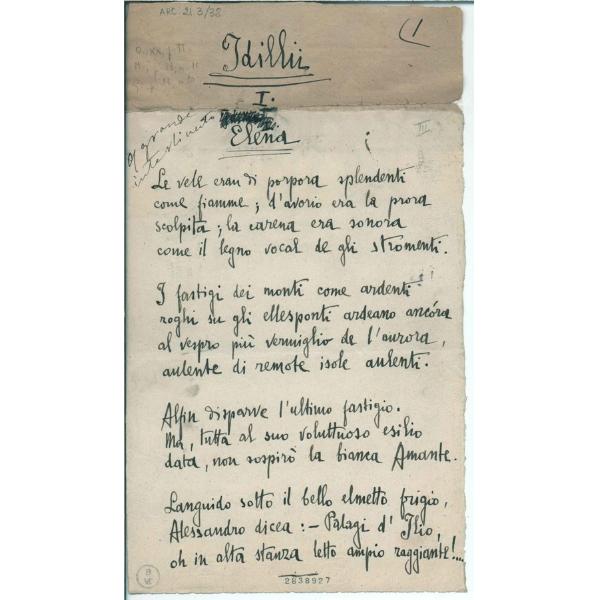 ARC. 21. 3/38
(1
Idillii
I.
Elena
grande
intestivento
III
Le vele eran di porpora splendenti
come fiamme; d'avorio era la prora
scolpita; la carena era sonora
come il legno vocal de gli stromenti.
I fastigi dei monti come ardenti
roghi su gli ellesponti ardeano ancóra
al vespro più vermiglio de l'aurora,
aulente di remote isole aulenti.
Alfin disparve l'ultimo fastigio.
Ma, tutta al suo voluttuoso esilio
data, non sospirò la bianca Amante.
Languido sotto il bello elmetto frigio,
Alessandro dicea: – Palagi d'Ilio,
oh in alta stanza letto ampio raggiante!...
2838927